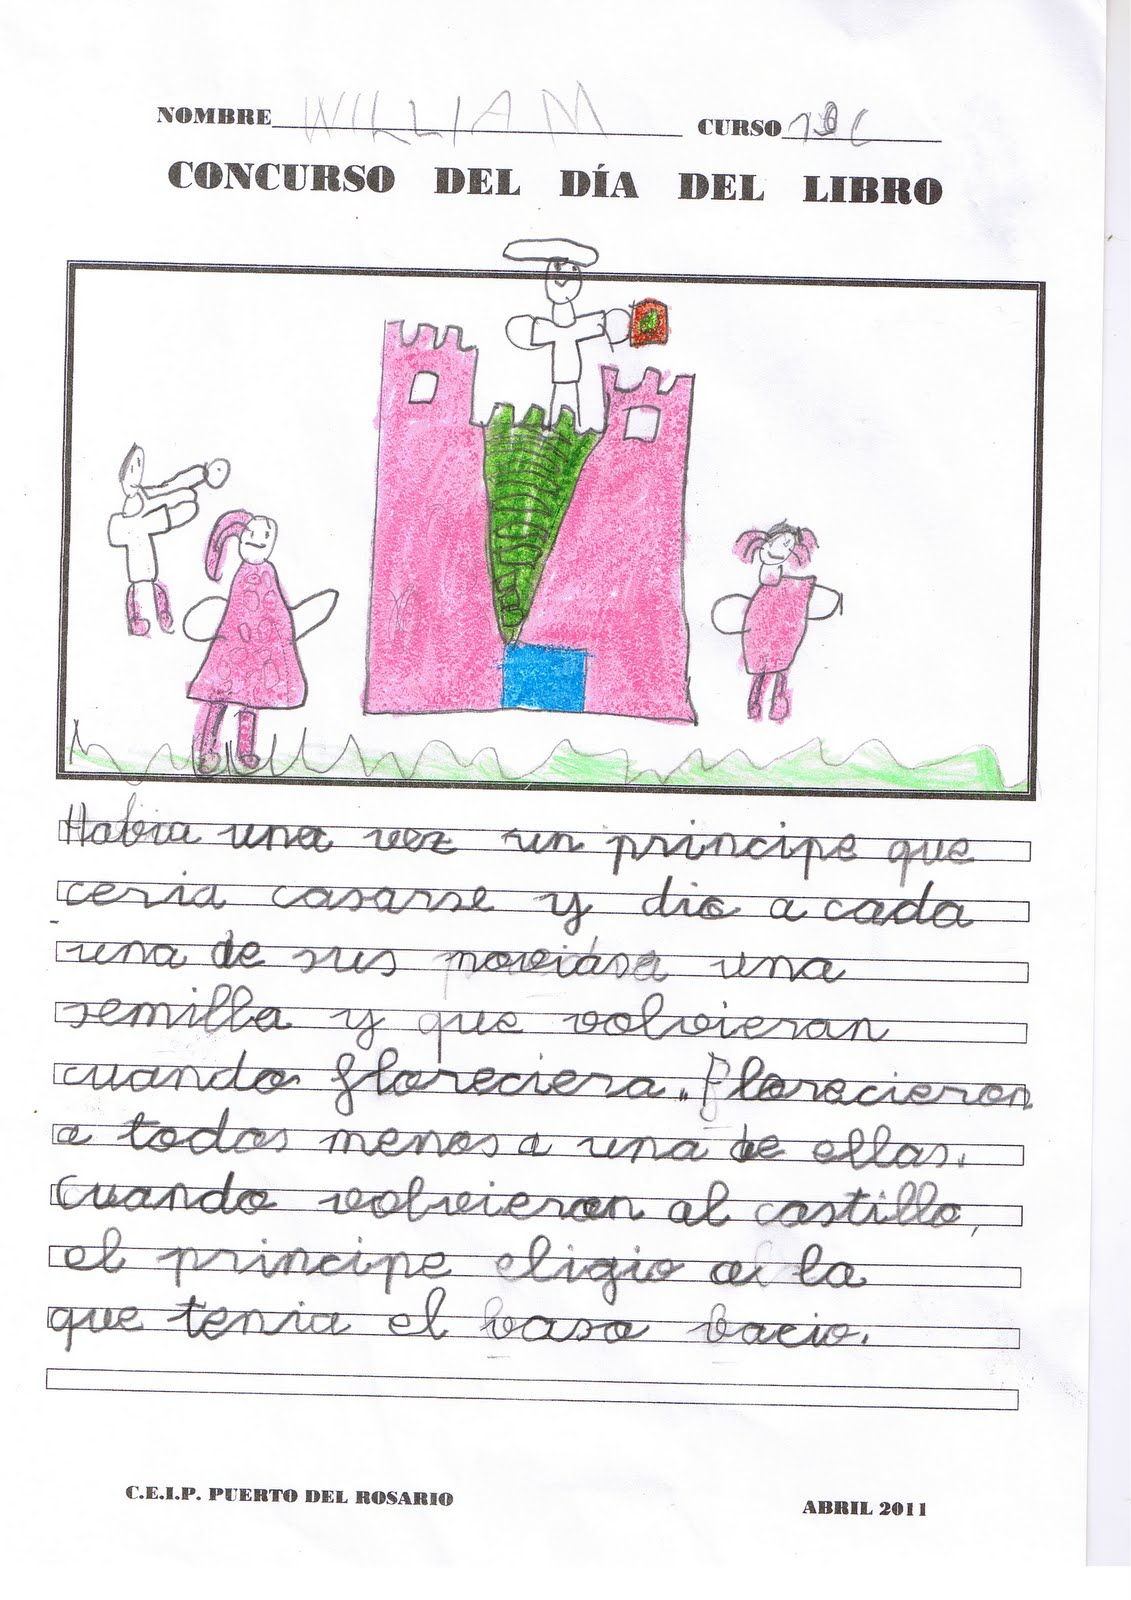 NOMBRE WILLIAM CURSO
CONCURSO DEL DÍA DEL LIBRO
Habia una vez un principe que
ceria casarse y dio a cada
una de sus novias una
semilla y que volvieran
cuando floreciera. Florecieron
a todas menos a una de ellas.
Cuando volvieron al castillo,
el principe eligio a la
que tenia el baso bacio.
C.E.I.P. PUERTO DEL ROSARIO
ABRIL 2011